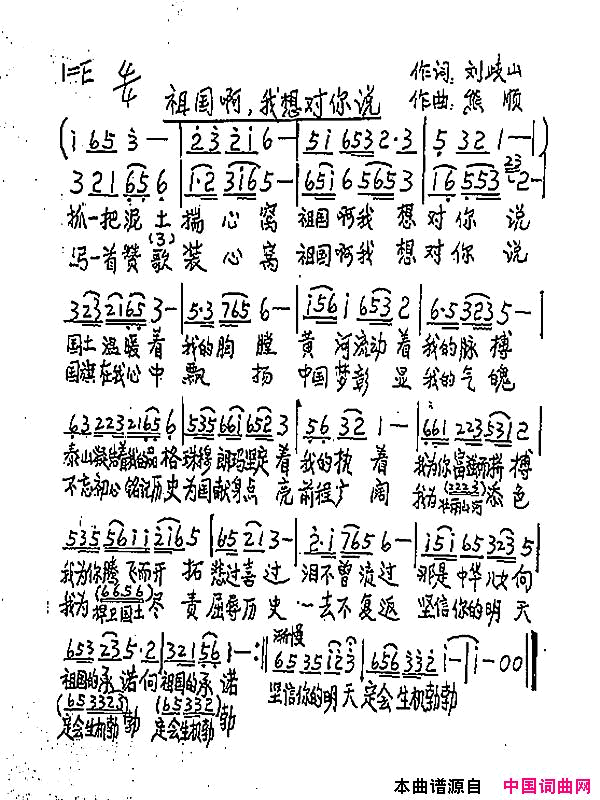 1=E 4/4
祖国啊,我想对你说
作词:刘岐山
作曲:熊 顺
(i 6 5 3 — | 2 3 2 i 6 — | 5 i 6 5 3 2 · 3 | 5 3 2 1 — |)
3 2 1 6 5 6 | 1 · 2 3 1 6 5 — | 6 5 i 6 5 6 5 3 | 1 6 5 5 3 2 3 2 — |
抓一把泥土揣心窝 祖国啊我想对你说
写一首赞歌装心窝 祖国啊我想对你说
(3)
3 2 3 2 1 6 5 3 — | 5 · 3 7 6 5 6 — | i 5 6 i 6 5 3 2 | 6 · 5 3 2 3 5 — |
国土温暖着我的胸膛 黄河流动着我的脉搏
国旗在我心中飘扬 中国梦彰显我的气魄
6 3 2 2 3 2 1 6 5 6 | 5 3 5 6 6 i 6 5 2 3 | 5 6 3 2 1 — | 6 6 1 2 2 3 5 3 1 2 |
泰山凝结着我的品格 珠穆朗玛坚定着我的执着 我为你富强而拼搏
不忘初心铭记历史为国献身点亮前程广阔 我为壮丽山河添色
(2 2 2 3)
5 3 5 5 6 i i 2 i 6 5 | 6 5 2 1 3 — | 2 · i 7 6 5 6 — | i 5 i 6 5 3 2 3 5 |
我为你腾飞而开拓 悲过喜过 泪不曾流过 那是中华儿女向
我为捍卫国土尽责 屈辱历史一去不复返 坚信你的明天
(6 6 5 6)
6 5 3 2 3 5 · 2 | 3 2 1 5 6 1 — :‖ 渐慢 6 5 3 5 i 2 3 | 6 5 6 3 3 2 i — | i — 0 0 ‖
祖国的承诺向祖国的承诺 坚信你的明天定会生机勃勃
(6 5 3 3 2 3) (6 5 3 3 2)
定会生机勃勃 定会生机勃勃
本曲谱源自 中国词曲网